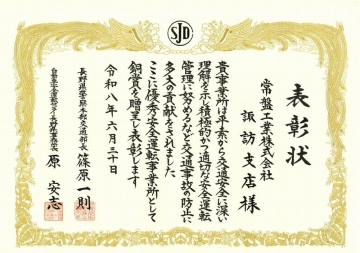 SJD
表彰状
常盤工業株式会社
諏訪支店様
貴事業所は平素から交通安全に深い
理解を示し積極的かつ適切な安全運転
管理に努めるなど交通事故の防止に
多大の貢献をされました
ここに優秀安全運転事業所として
銅賞を贈呈し表彰します
令和八年六月三十日
長野県警察本部交通部長 篠原一則
自動車安全運転センター長野県事務所長 原安志